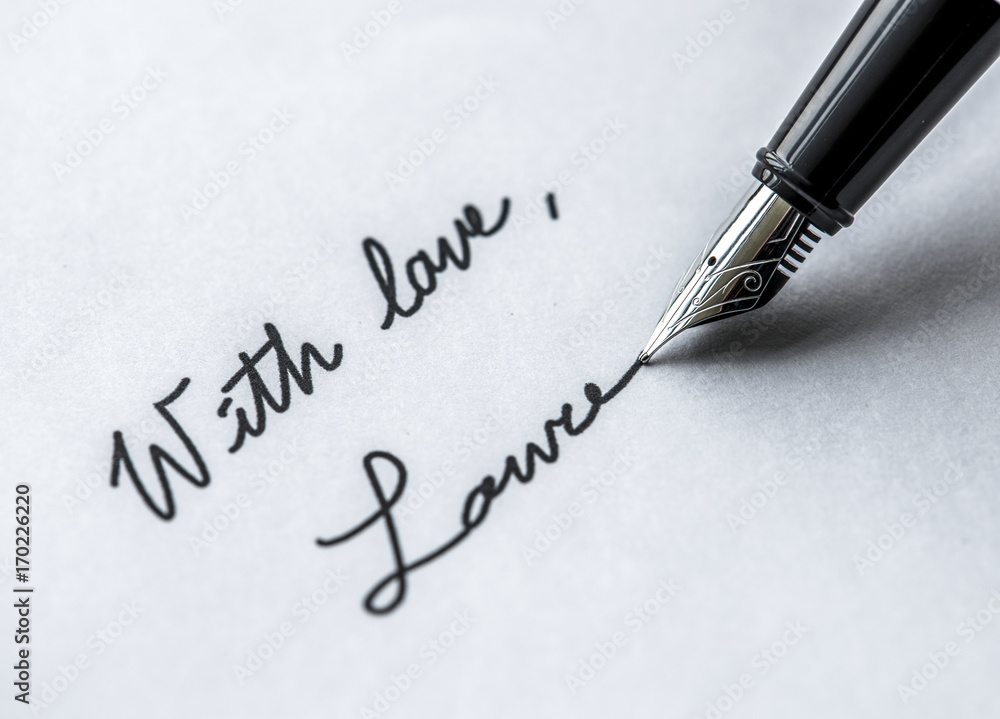 With love,
Lawre
Adobe Stock | #170226220